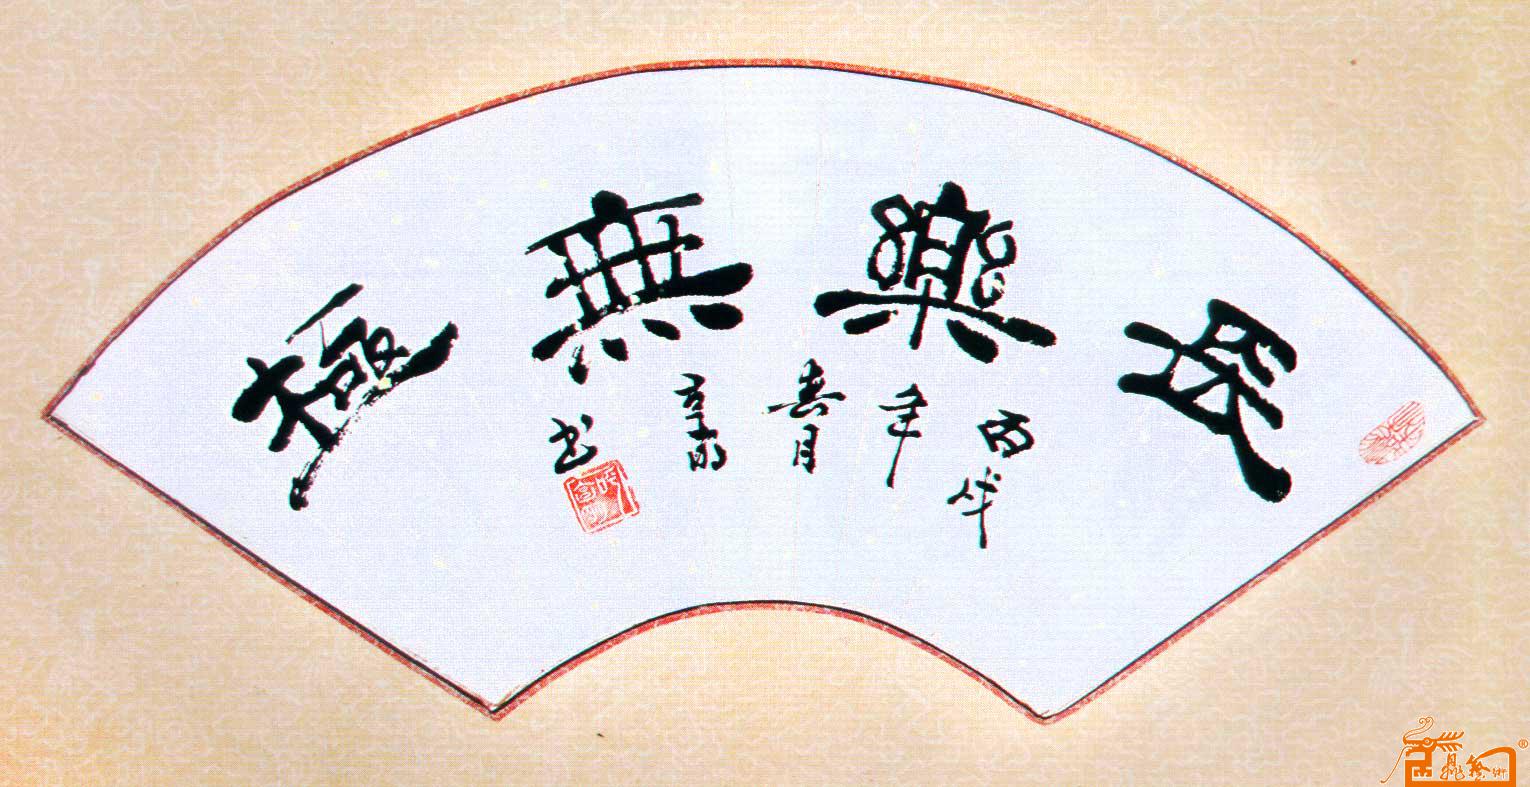 長樂無極
丙戌年春月
書